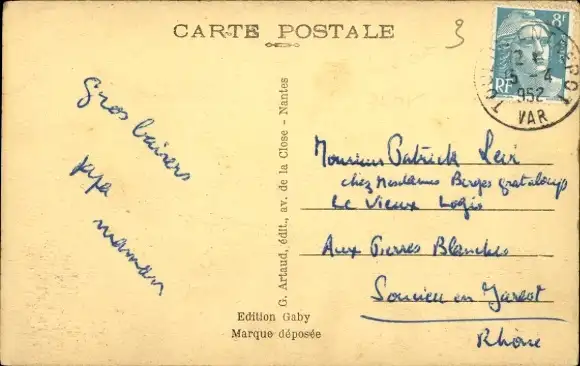 CARTE POSTALE
3
8F
RF
TOULON ENTREPOT
15 - 4
1952
VAR
Gros baisers
papa
maman
G. Artaud, édit., av. de la Close - Nantes
Monsieur Patrick Levi
chez Mesdames Berges grataloup
Le Vieux Logis
Aux Pierres Blanches
Soucieu en Jarest
Rhône
Edition Gaby
Marque déposée